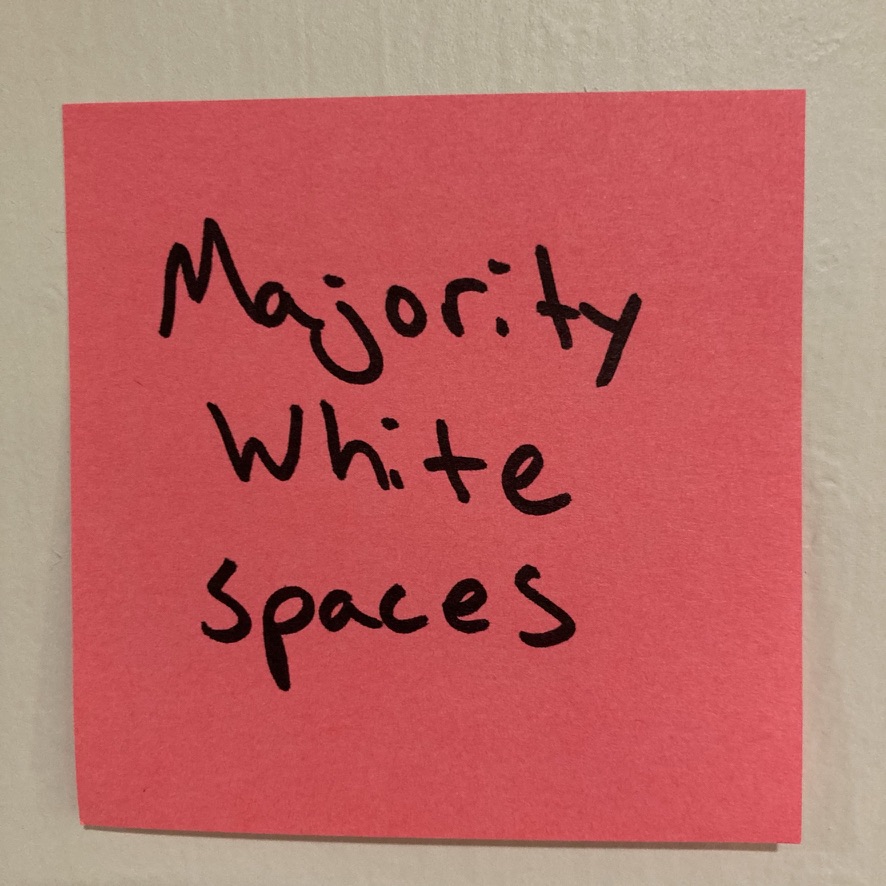 Majority
White
spaces